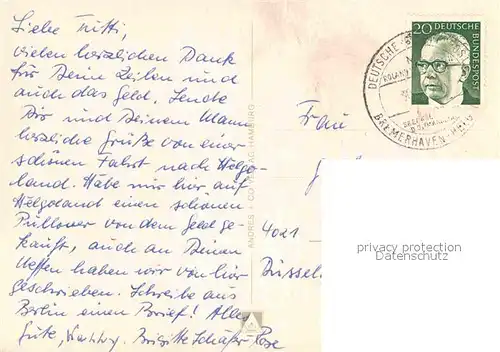 Liebe Fritti,
vielen herzlichen Dank
für Deine Zeilen und
auch das Geld. Sende
Dir und Deinem Mann
herzliche Grüße von einer
schönen Fahrt nach Helgo-
land. Habe mir hier auf
Helgoland einen schönen
Pullover von dem Geld ge-
kauft, auch an Deinen
Neffen haben wir von hier
geschrieben. Schreibe aus
Berlin einen Brief! Alles
Gute, Brigitte Schäfer-Rose
ANDRES + CO VERLAG HAMBURG
20 DEUTSCHE
BUNDESPOST
DEUTSCHE
ROLAND
BREMERHAVEN-HELG
Frau
4021
Düssel
privacy protection
Datenschutz